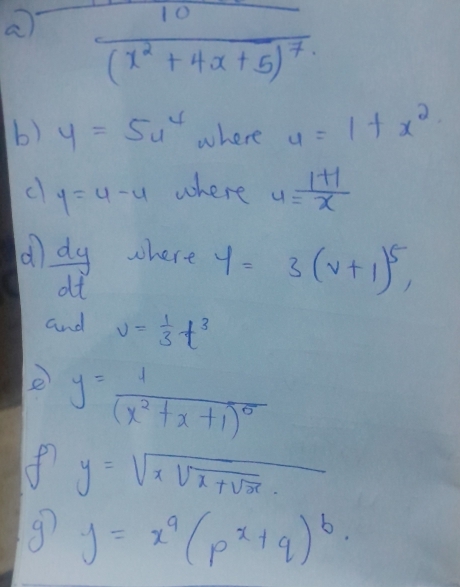 a) 10 / (x² + 4x + 5)⁷.
b) y = 5u⁴ where u = 1 + x².
c) y = u - u where u = 1+1 / x
d) dy/dt where y = 3(v+1)⁵,
and v = ⅓ t³
e) y = 1 / (x² + x + 1)⁶
f) y = √x √x + √x.
g) y = xᵃ (pˣ + q)ᵇ.